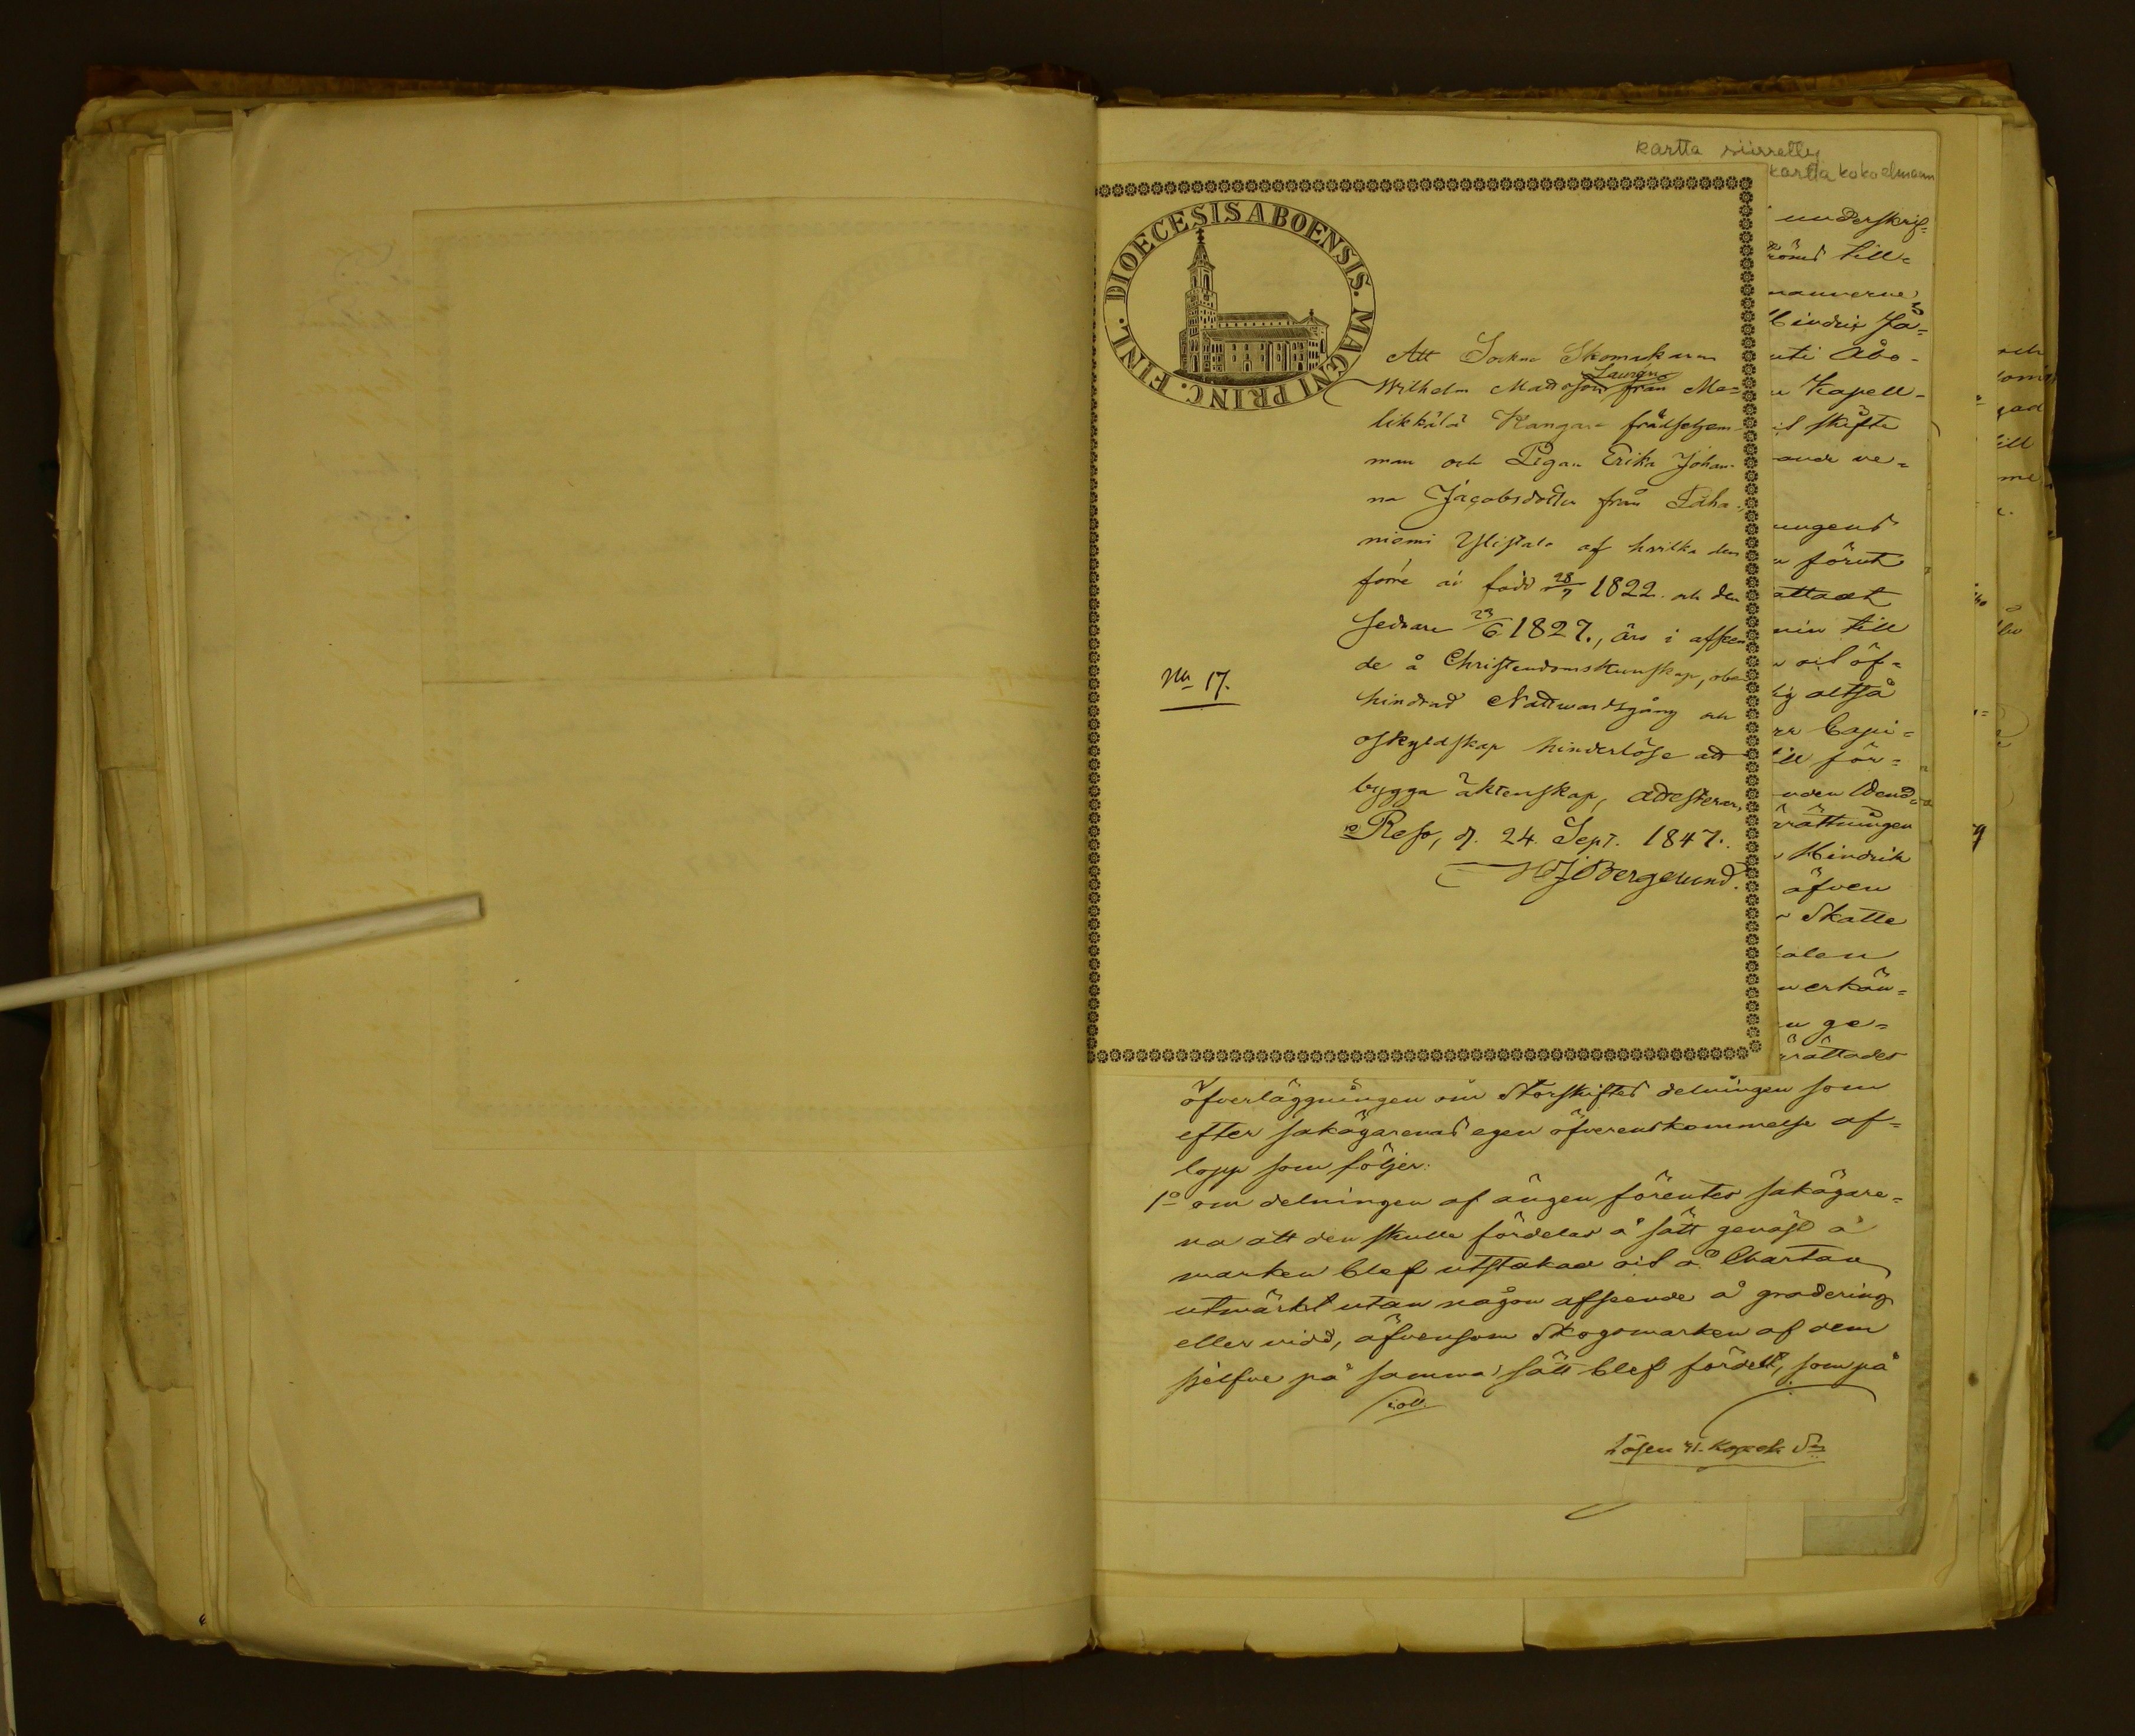 kartta siirretty
kartta kokoelmaan
DIOECESIS ABOENSIS. MAGNI PRINC. FINL.
Att Sockne Skomakaren
Laurén
Wilhelm Mattsson från Me-
likkälä Kangas frälsehem-
man och Pigan Erika Johan-
na Jacobsdotter från Laha-
niemi Ylistalo af hvilka den
förre är född 28/7 1822. och den
sednare 23/6 1827., äro i afseen
de å Christendomskunskap, obe-
hindrad Nattwardsgång och
oskyldskap hinderlöse att
bygga äktenskap, attesteras
Reso, d. 24. Sept. 1847.
Bergelund.
No 17.
underskrif-
till-
Hindric Jä-
uti Åbo-
Kapell-
skifte
ande ve-
ungens
förut
till
öf-
altså
Capi-
för-
rättningen
Hindrik
äfven
Skatte
erkän-
ge-
rättades
öfverläggningen om Storskiftes delningen som
efter sakägarenas egen öfverenskommelse af-
lopp som följer:
1o om delningen af ängen förentes sakägare-
na att den skulle fördelas å sätt genast å
marken blef utstakad oit å Chartan
utmärkt utan någon afseende å gradering
eller vidd, äfvensom Skogsmarken af dem
sjelfve på samma sätt blef fördelt, som på
Lösen 41. Kopek Sr